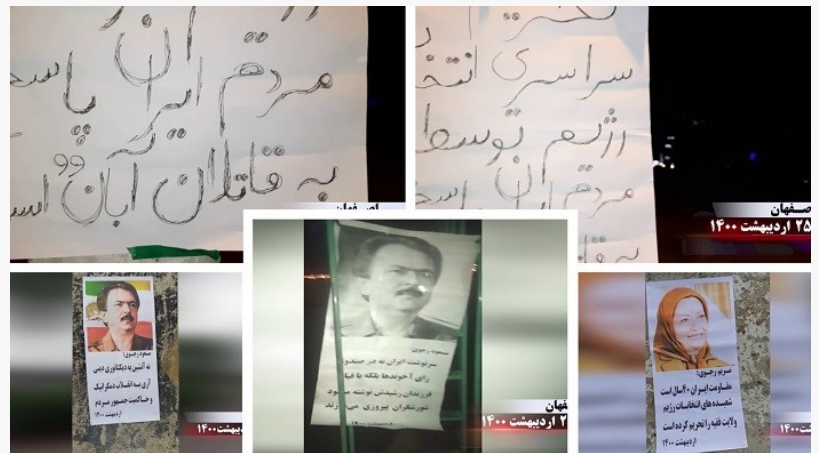 مردم ایران پاسخ
به قاتلان آبان است
تحریم
سراسری
رژیم توسط
مردم ایران
اصفهان
۲۵ اردیبهشت ۱۴۰۰
مسعود رجوی:
نه آتشین به دیکتاتوری دینی
آری به انقلاب دمکراتیک
و حاکمیت جمهور مردم
اردیبهشت ۱۴۰۰
مسعود رجوی
سرنوشت ایران نه در صندوق
رای آخوندها بلکه با قیام
فرزندان رشیدش نوشته می‌شود
شورشگران پیروزی می‌آورند
مریم رجوی:
مقاومت ایران ۴۰ سال است
شعبده های انتخابات رژیم
ولایت فقیه را تحریم کرده است
اردیبهشت ۱۴۰۰